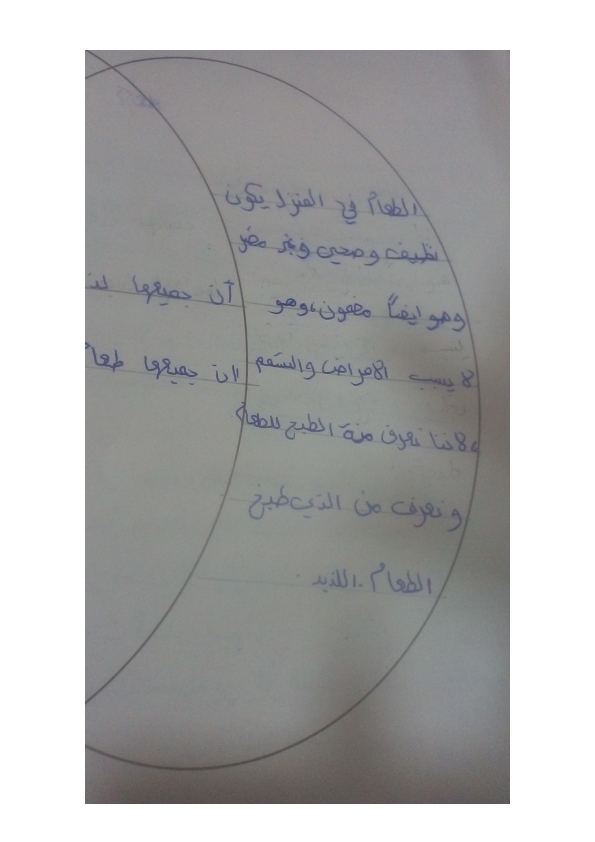 الطعام في المنزل يكون
نظيف وصحي وغير مضر
وهو ايضاً مضمون، وهو
لا يسبب الامراض والتسمم
، لاننا نعرف مدة الطبخ للطعام
و نعرف من الذي طبخ
الطعام اللذيذ.
أن جميعها
ان جميعها طعام